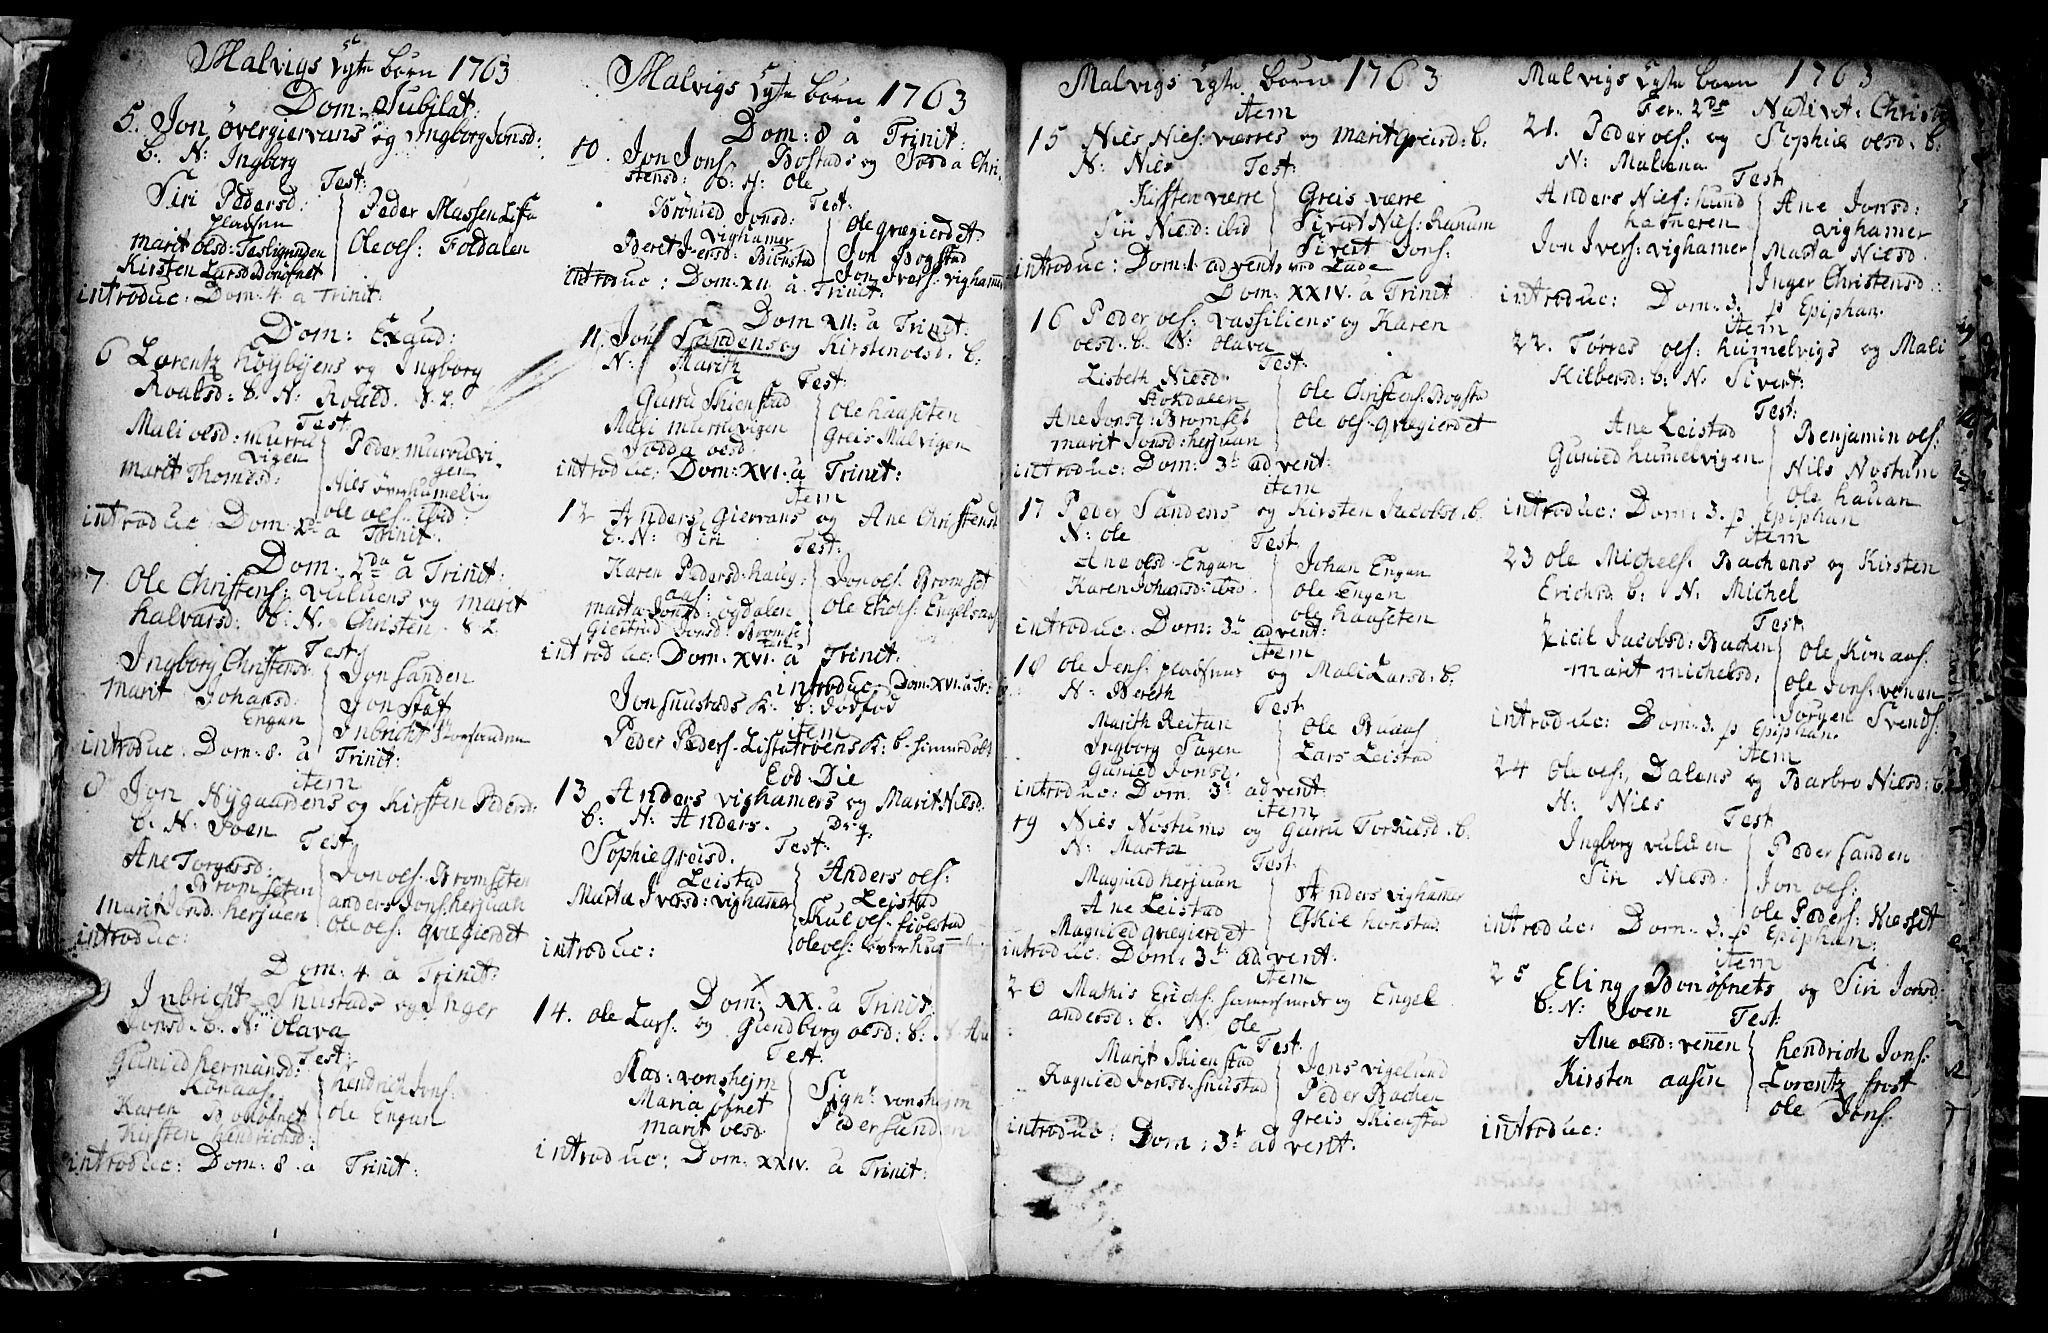 Malvigs Ægte børn 1763
Dom: Jubilat:
5. Jon øvergiervans og Ingborg Jonsd:
b. N: Ingborg
Test:
Siri Pedersd:
Peder Mussen Lista
marit olsd:
Ole ols: Foldalen
Kirsten Larsd
introduc: Dom. 4 a Trinit:
Dom: Exaud:
6 Lorentz høybÿens og Ingborg
Roalsd: B. N: Roald.
Test
Mali olsd: murru
vigen
Peder murruvi-
gen
marit Thomesd:
Nils øverhumelvig
ole ols: ibid:
introduc Dom. Xa a Trinit:
Dom: 2da a Trinit:
7 Ole Christens: vuluens og marit
halvarsd: b: N: Christen.
Test:
Ingborg Christensd:
Jon sanden
marit Johansd:
Engan
Jon Staf
Inbricht Storsanden
introduc: Dom: 8. a Trinit:
item
8 Jon Nÿgaardens og Kirsten Pedersd:
b. N: Joen
Test
Ane Torgersd:
Bromseten
Jon ols: Bromseten
marit Jonsd: herjuan
anders Jons: herjuan
ole ols: grægierdet
introduc:
Dom: 4. a Trinit:
9 Inbricht Snustads og Inger
Jonsd: b. N: olava
Test:
Gunied hermansd:
Konaas
hendrich Jons:
Karen
ole Engan
Kirsten hendrichsd:
introduc: Dom: 8 a Trinit:
Malvigs Ægte børn 1763
Dom: 8 a Trinit:
10. Jon Jons Bostads og Jodda Chri-
stensd: b: N: ole
Test:
Brønied Jonsd:
vighamer
Ole grægierdet
Beret Iversd: Biørstad
Jon Bogstad
Jon Ivers: vighamer
introduc: Dom: XII a Trinit:
Dom XII: a Trinit:
11. Jon Sandens og Kirsten olsd. b:
N: Marith
Test:
Gurru Skienstad
Ole haaseten
Mali murruvigen
Greis Malvigen
Jodda olsd.
introduc: Dom: XVI. a Trinit:
item
12 Anders Giervans og Ane Christensd
b. N: Siri
Test:
Karen Pedersd: haug-
aas:
Jon ols. Bromset
marta Jonsd: øgdalen
ole Erichs: Engelsaas
Giertrud Jonsd: Bromse
introduc: Dom. XVI. a Trinit:
introduc: Dom. XVI. a Tr:
Jon snustads K: b: dødfød
item
Peder Peders. Listatrøens K: b.
Eod: Die
13. Anders vighamers og Marit Nielsd.
b: N: Anders.
Test:
Sophie Greisd.
Leistad
Anders ols:
Leistad
Marta Iversd: vighamer
Skul ols:
ole ols:
introduc:
Dom: XX. a Trinit:
14. ole Lars: og Gundborg olsd: b: N Ane
Test:
Mad: vonshejm
Signr: vonshejm
Maria øfnet
Peder sanden
marit olsd
introduc: Dom: XXIV. a Trinit:
Malvigs Ægte børn 1763
item
15 Niels Niels: værres og marit Greisd: b.
N: Niels
Test:
Kirsten værre
Greis værre
Siri Nielsd: ibid
Sivert Niels: Ranum
Sivert Jons:
introduc: Dom. 1. advents ved Lade
Dom: XXIV. a Trinit
16 Peder ols: vassliens og Karen
olsd. b. N: olava
Test:
Lisbeth Nielsd.
Stokdalen
ole Christens: Bogsta
Ane Jonsd: Bromset
ole ols: grægierdet
marit Jonsd: herjuan
introduc: Dom: 3t advent:
item
17 Peder Sandens og Kirsten Jacobsd. b.
N: ole
Test:
Ane olsd. Engan
Johan Engan
Karen Johansd: ibid
ole Engan
ole haaseten
introduc. Dom: 3t advent:
item
18 ole Jens: og Mali Larsd: b.
N: Bereth
Test
Marith Reitan
Ole Buaas
Ingborg Sagen
Lars Leistad
Gunied Jonsd.
introduc: Dom. 3t advent:
item
19 Niels Nustums og Gurru Torkilsd. b.
N: Marta
Test:
Magnied herjuan
Anders vighamer
Ane Leistad
Eskil honstad
Magnied grægierdet
introduc: Dom: 3t advent.
item
20 Mathis Erichs: og Engel
andersd: b. N. ole
Test:
Marit Skienstad
Jens vigelund
Ragnied Jonsd: snustad
Peder Bachen
greis Skienstad
introduc: Dom: 3t advent.
Malvigs Ægte børn 1763
Fer: 2da Nativit: Christi
21. Peder ols: og Sophie olsd. b:
N: Malena
Test
Anders Niels: hund
hameren
Ane Jonsd:
vighamer
Jon Ivers: vighamer
Marta Nielsd:
Inger Christensd:
introduc: Dom: 3. p Epiphan.
item
22. Torres ols: humelvigs og Mali
Kilbersd: b: N: Sivert:
Test:
Ane Leistad
Benjamin ols:
Gunied humelvigen
Nils Nostum
ole hauan
introduc: Dom: 3. p Epiphan
item
23 ole Michels: Bachens og Kirsten
Erichsd: b: N: Michel
Test:
Zicil Jacobsd: Bachen
ole Konaas:
marit michelsd.
ole Jons: venen
Jørgen Svends:
introduc: Dom: 3. p Epiphan.
item
24 ole ols: Dalens og Barbro Nielsd: b
N: Niels
Test
Ingborg vuluen
Peder sanden
Siri Nielsd:
Jon ols:
ole Peders: Niesset
introduc: Dom. 3. p Epiphan:
item
25 Eling Bonøfnets og Siri Jonsd.
b: N: Joen
Test:
Ane olsd: venen
hendrich Jons:
Kirsten aasen
Lorentz frost
ole Jons:
introduc: